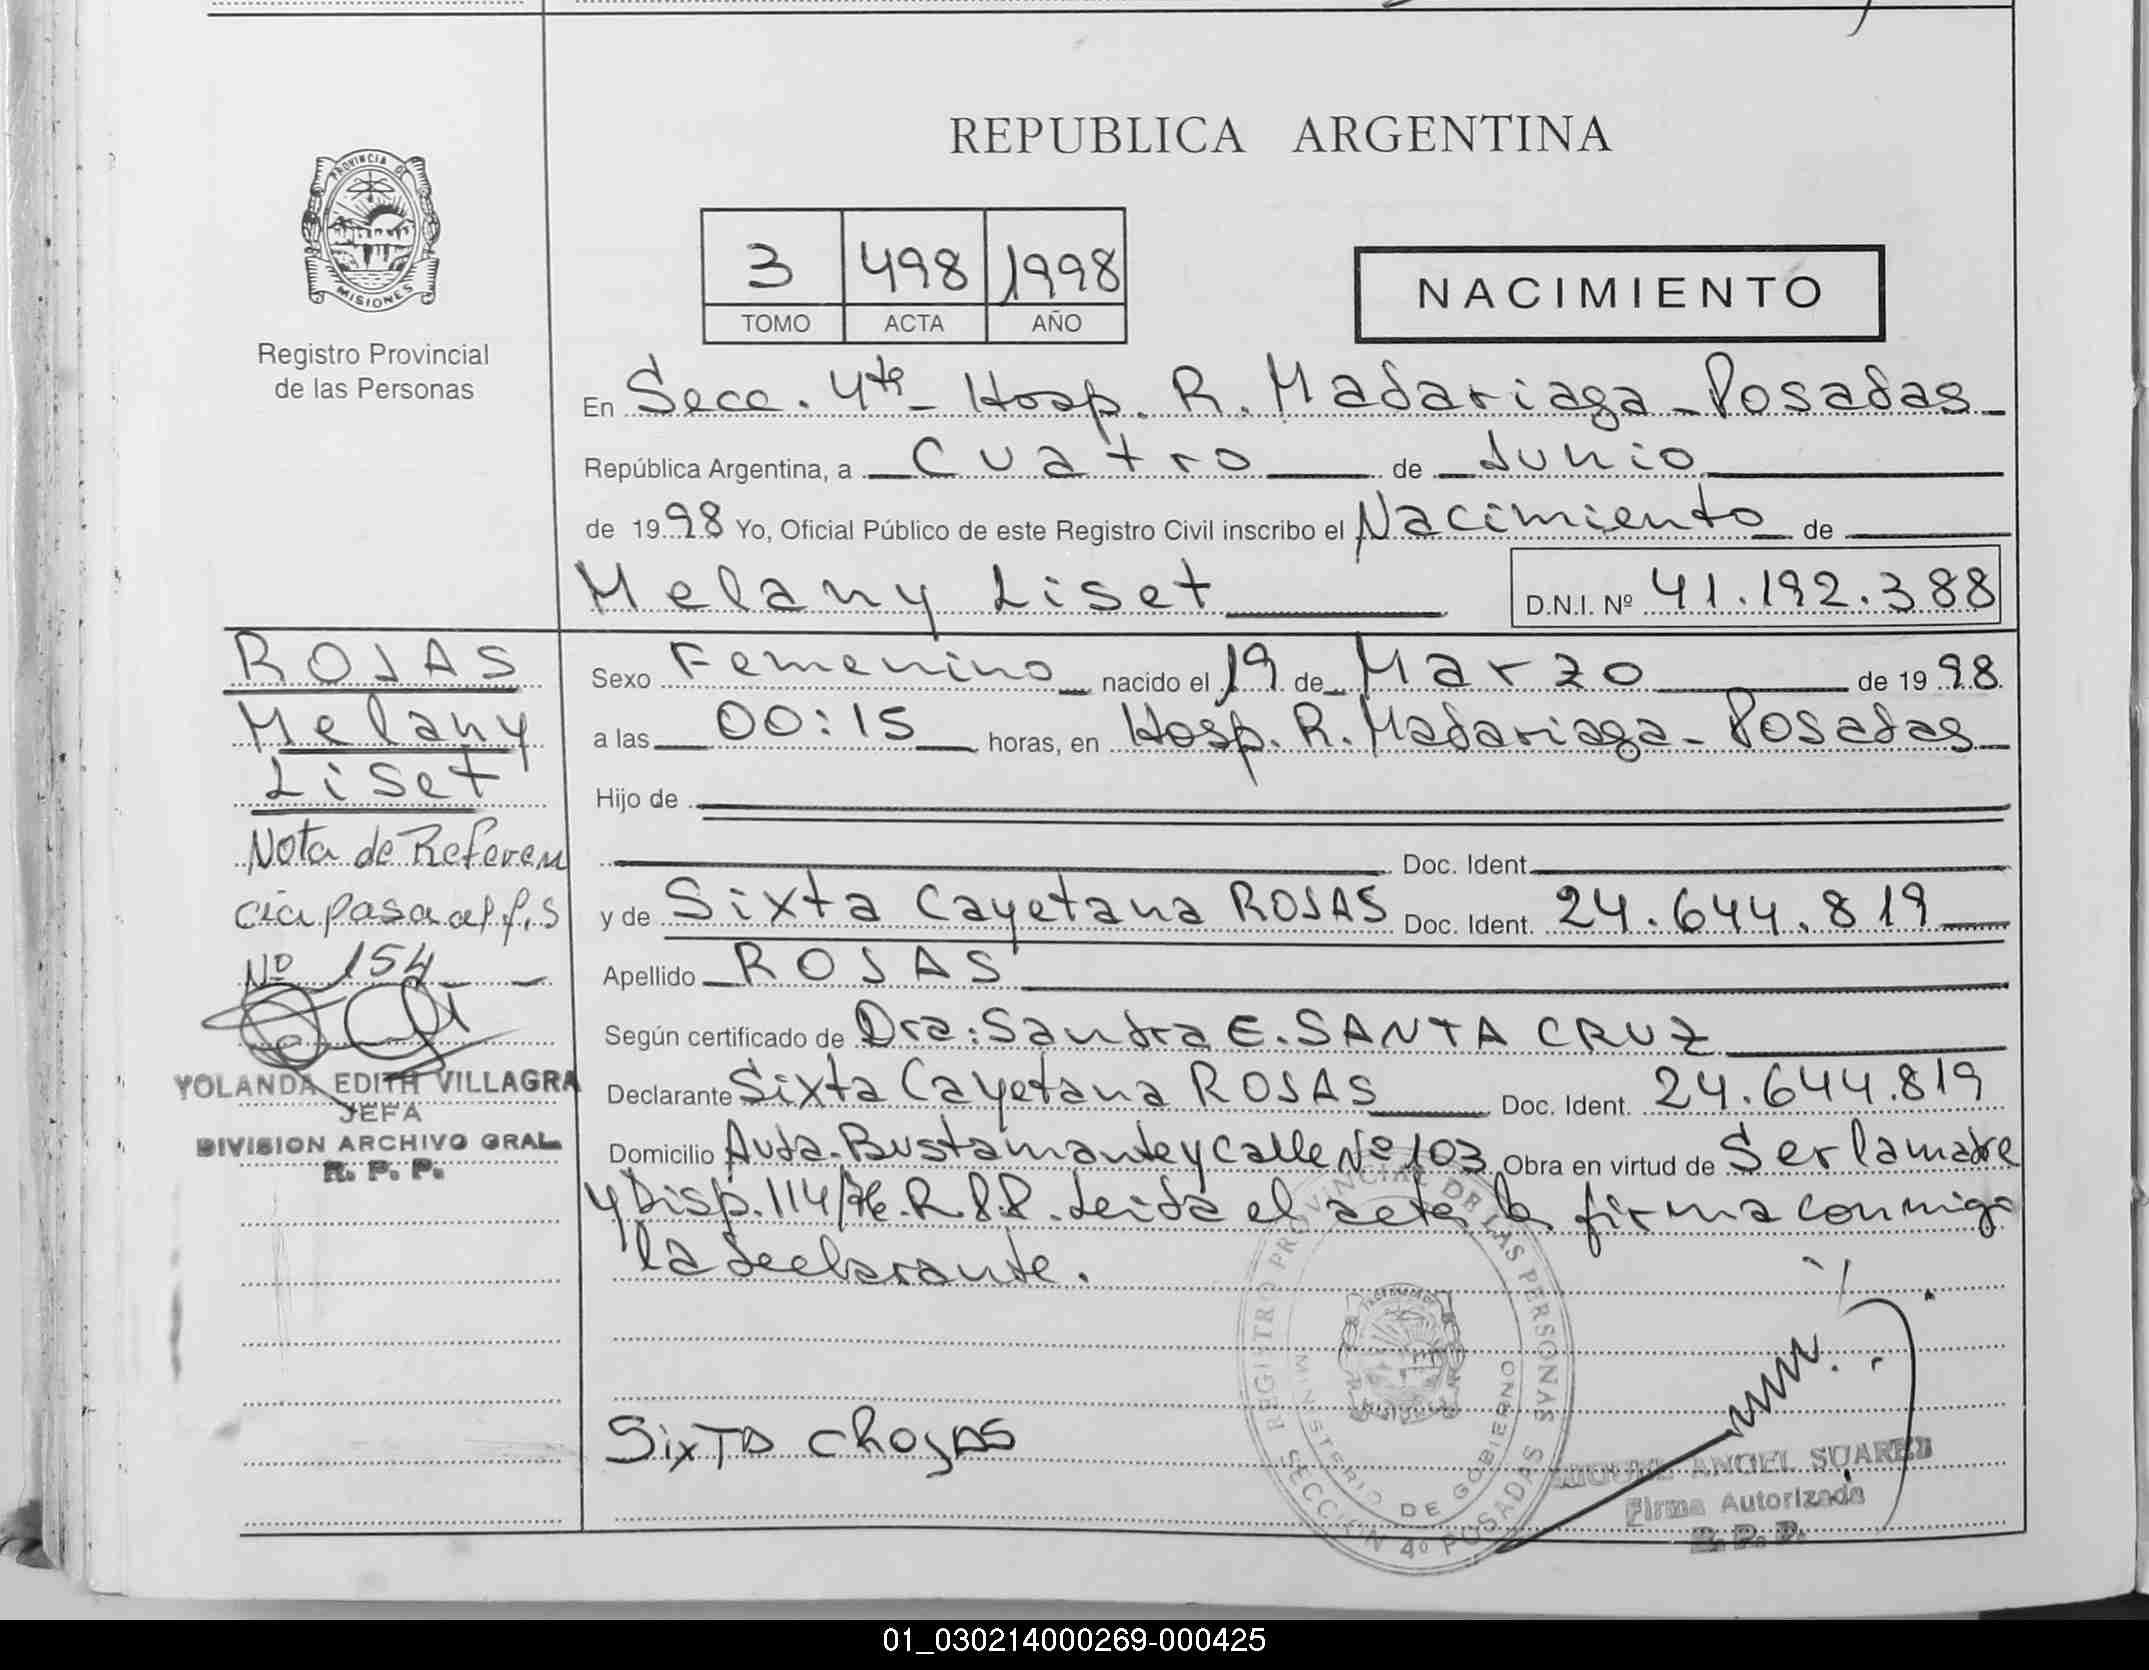 REPUBLICA ARGENTINA
PROVINCIA DE
MISIONES
Registro Provincial
de las Personas
3 498 1998
TOMO ACTA AÑO
NACIMIENTO
En Secc. 4ta - Hosp. R. Madariaga - Posadas
República Argentina, a Cuatro de Junio
de 1998 Yo, Oficial Público de este Registro Civil inscribo el Nacimiento de
Melany Liset D.N.I. Nº 41.192.388
ROJAS
Melany
Liset
Nota de Referen
cia pasa al f,s
Nº 154
YOLANDA EDITH VILLAGRA
JEFA
DIVISION ARCHIVO GRAL
R. P. P.
Sexo Femenino nacido el 19 de Marzo de 1998
a las 00:15 horas, en Hosp. R. Madariaga - Posadas
Hijo de
Doc. Ident.
y de Sixta Cayetana ROJAS Doc. Ident. 24.644.819
Apellido ROJAS
Según certificado de Dra: Sandra E. SANTA CRUZ
Declarante Sixta Cayetana ROJAS Doc. Ident. 24.644.819
Domicilio Avda. Bustamante y Calle Nº 103 Obra en virtud de Ser la madre
y Disp. 114/ R.P.P. Leida el acta la firma conmigo
la declarante.
Sixta C Rojas
REGISTRO PROVINCIAL DE LAS PERSONAS
MINISTERIO DE GOBIERNO
SECCION 4º POSADAS
MIGUEL ANGEL SUAREZ
Firma Autorizada
R. P. P.
01_030214000269-000425